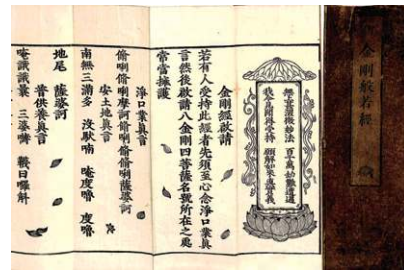 金剛般若經
無上甚深微妙法 百千萬劫難遭遇
我今見聞得受持 願解如來眞實義
金剛經啟請
若有人受持此經者先須至心念淨口業眞
言然後啟請八金剛四菩薩名號所在之處
常當擁護
淨口業眞言
脩唎脩唎摩訶脩唎脩脩唎薩婆訶
安土地眞言
南無三滿多 沒馱喃 唵度嚕 度嚕
地尾 薩婆訶
普供養眞言
唵誐誐曩 三婆嚩 韈日囉斛